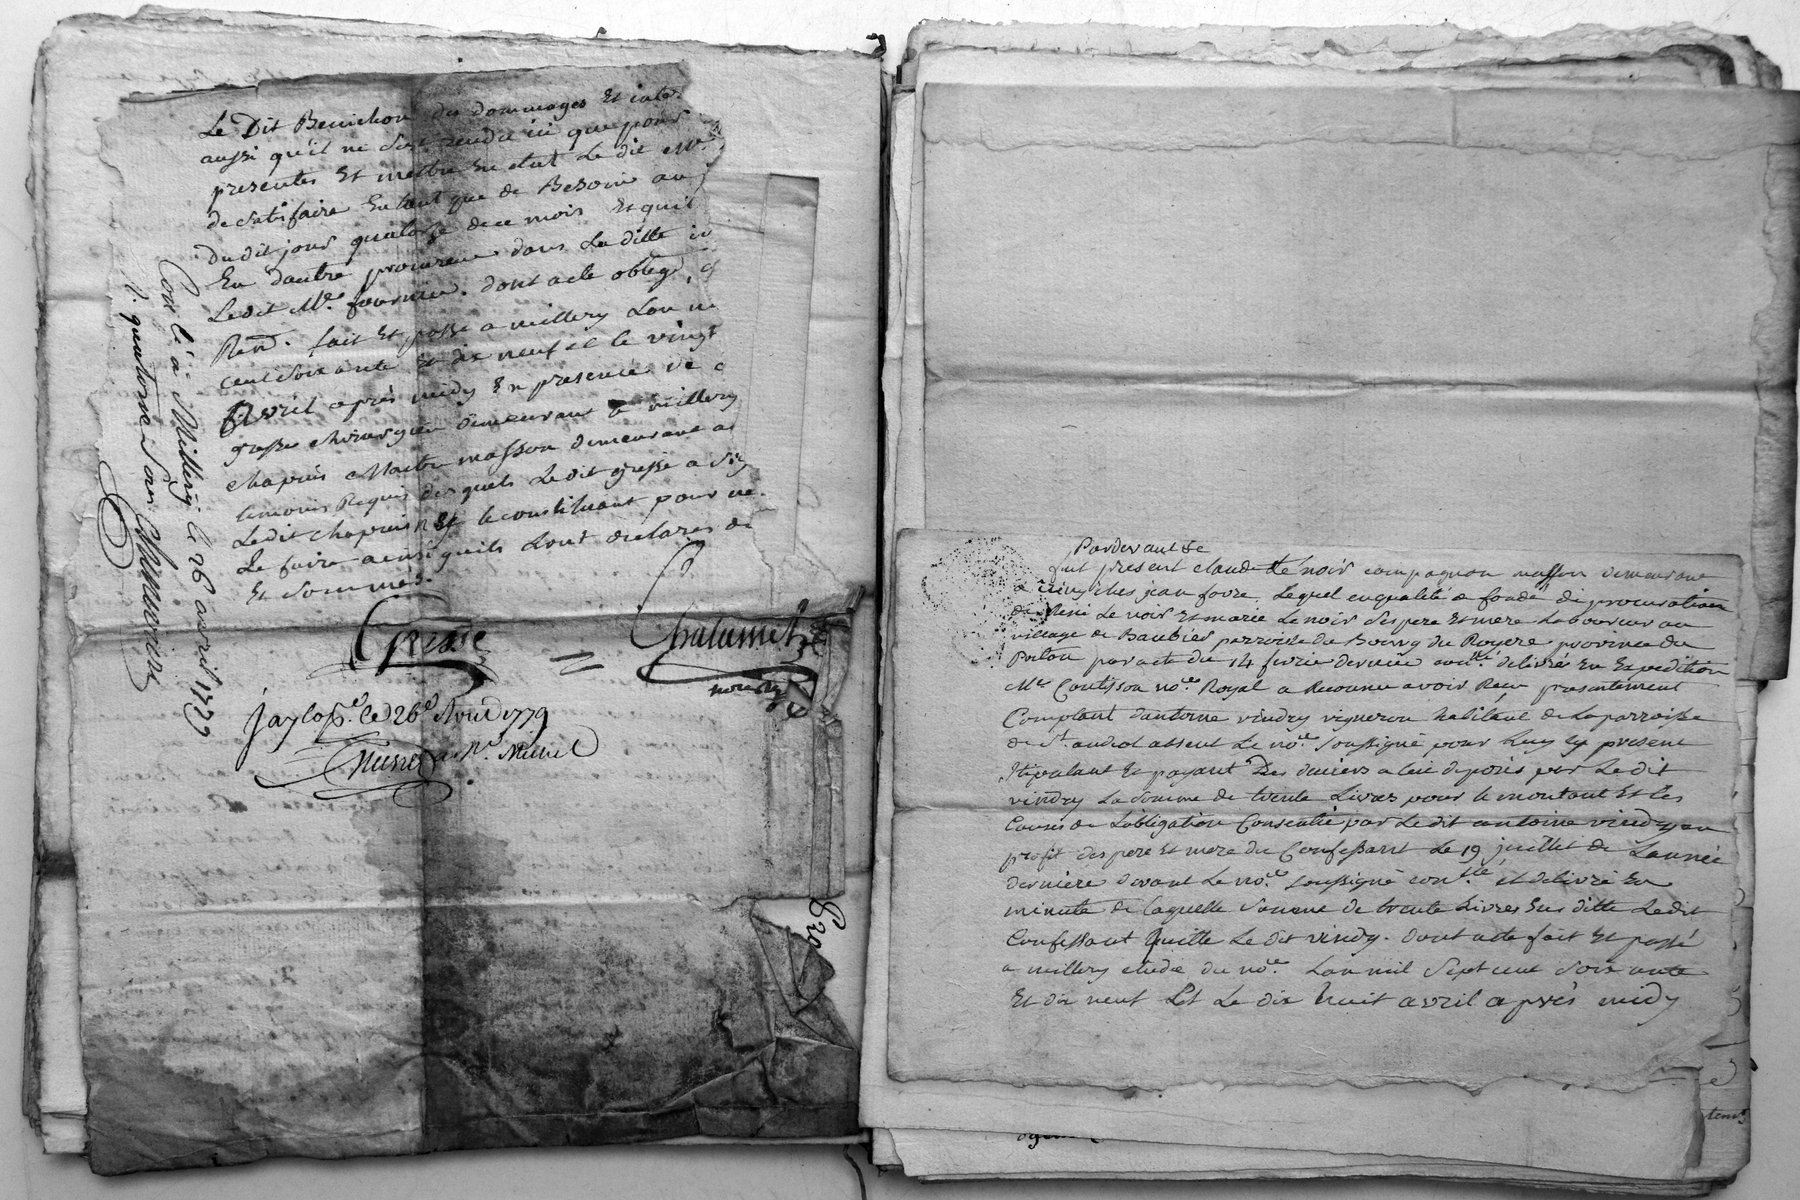 Le Dit Benichon des dommages Et inte
aussi qu'il ne s'est rendu ici que pour
presenter Et mettre En etat Le dit Mr.
de satisfaire En tant que de Besoin au
Du dit jour quatorze de ce mois Et qu'il
En d'autre procureur dans La ditte in
Ledit Me. fournier. dont acte obligé,
Renon. fait Et passé a millery L'an m
cent soixante et dix neuf et le vingt
Avril après midy En presence de
gresse chirurgien demeurant a millery
chapuis Maitre masson demeurant a
temoins Requis desquels Ledit gresse a sig
Ledit chapuis n Et le constituant pour ne
Le faire ainsi qu'ils L'ont declarés de
Et sommés.
Gresse = Chalumet
nore Ry
Con lé à Millery le 26 avril 1779
R. quatorze sous
J'ay lopie le 26e Avril 1779
Millet
Pardevant Le
fut present claude Le noir compagnon masson demeurant
ches jean favre, Lequel en qualité de fondé de procuration
de René Le noir Et marie Le noir Ses pere Et mere Laboureur au
village de Baubier parroisse du Bourg de Royere province du
Poitou par acte du 14 fevrier dernier contlé délivré En Expedition
Me Coutisson nore Royal a Reconnu avoir Recu presentement
Comptant d'antoine vindry vigneron habitant de La parroisse
de St. andeol absent Le nore soussigné pour Luy cy present
Stipulant Et payant Des deniers a lui deposés par Le dit
vindry La somme de trente Livres pour le montant Et les
Causes de L'obligation Consentie par Ledit antoine vindry au
profit des pere Et mere du Confessant Le 19 juillet de L'année
derniere devant Le nore soussigné contlé et delivré En
minute de laquelle somme de trente Livres Sus ditte Ledit
Confessant quitte Le dit vindry. dont acte fait Et passé
a millery etude du nore. L'an mil sept cent soixante
Et dix neuf Et Le dix huit avril après midy